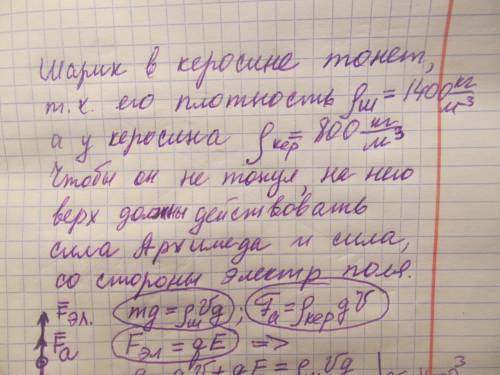 Шарик в керосине тонет,
т.к. его плотность ρш = 1400 кг/м³
а у керосина ρкер = 800 кг/м³
Чтобы он не тонул, на него
верх должны действовать
сила Архимеда и сила,
со стороны электр поля.
F̅эл. mg = ρшVg ; Fa = ρкер gV
F̅a Fэл = qE =>
gV + qE = ρшVg